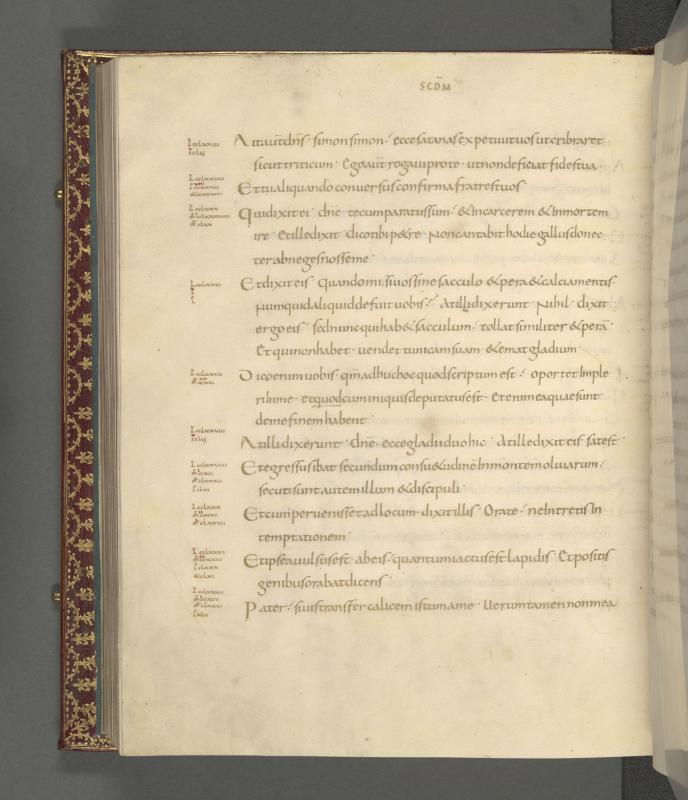 SCDM̄
Ait aut̄ dn̄s · simon simon · ecce satanas expetiuit uos ut cribraret
sicut triticum · Ego aut̄ rogaui pro te · ut non deficiat fides tua ·
Et tu aliquando conuersus confirma fratres tuos
Qui dixit ei · dn̄e · tecum paratus sum · & in carcerem & in mortem
ire · Et ille dixit · dico tibi p&re · Non cantabit hodie gallus donec
ter abneges nosse me ·
Et dixit eis · quando misi uos sine sacculo & pera & calciamentis ·
Numquid aliquid defuit uobis · At illi dixerunt · Nihil · dixit
ergo eis · sed nunc qui hab& sacculum · tollat similiter & perā
Et qui non habet · uendet tunicam suam & emat gladium ·
Dico enim uobis · qm̄ adhuc hoc quod scriptum est · oportet imple
ri in me · et quod cum iniquis deputatus est · Etenim ea quae sunt
de me finem habent ·
At illi dixerunt · dn̄e · ecce gladii duo hic · At ille dixit eis · sat est ·
Et egressus ibat secundum consu&udinē in montem oliuarum ·
secuti sunt autem illum & discipuli ·
Et cum peruenisset ad locum · dixit illis · Orate · ne intretis in
temptationem ·
Et ipse auulsus est ab eis · quantum iactus est lapidis · Et positis
genibus orabat dicens ·
Pater · si uis transfer calicem istum a me · Uerumtamen non mea